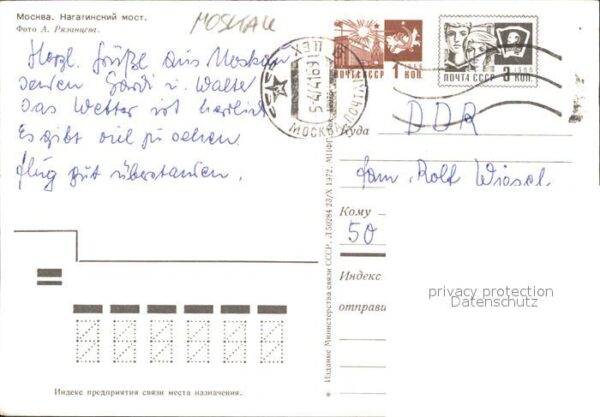 Москва. Нагатинский мост.
Фото А. Рязанцева.
MOSKAU
Herzl. Grüße aus Moskau
senden Gerdi u. Walter
Das Wetter ist herrlich
Es gibt viel zu sehen
Flug gut überstanden.
ПОЧТА СССР 1 КОП.
ПОЧТА СССР 3 КОП.
МОСКВА ПОЧТАМТ
Куда
DDR
Fam. Rolf Wiesel
Кому
50
Индекс
отправи
privacy protection
Datenschutz
Издание Министерства связи СССР. Л 50284 23/X 1972.
Индекс предприятия связи места назначения.